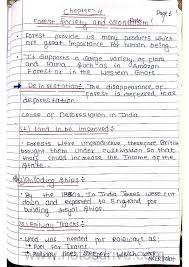 Chapter-4
Page 1
Forest Society and colonialism
• Forest provide us many products which
are great importance for human being.
• It supports a large variety of flora
and fauna such as in Amazon
Forest or in the Western Ghats
Deforestation: The disappearance of
forest is referred to as
deforestation.
cause of Deforestation in India
Land to be improved:
• Forests were unproductive, therefore British
brought them under cultivation so that
could increase the Income of the
State.
Ships
• By the In India trees were cut
down and exported to England for
building Ships.
Railway Tracks
• Wood was needed for railways as
for
• Railway lines sleepers which were